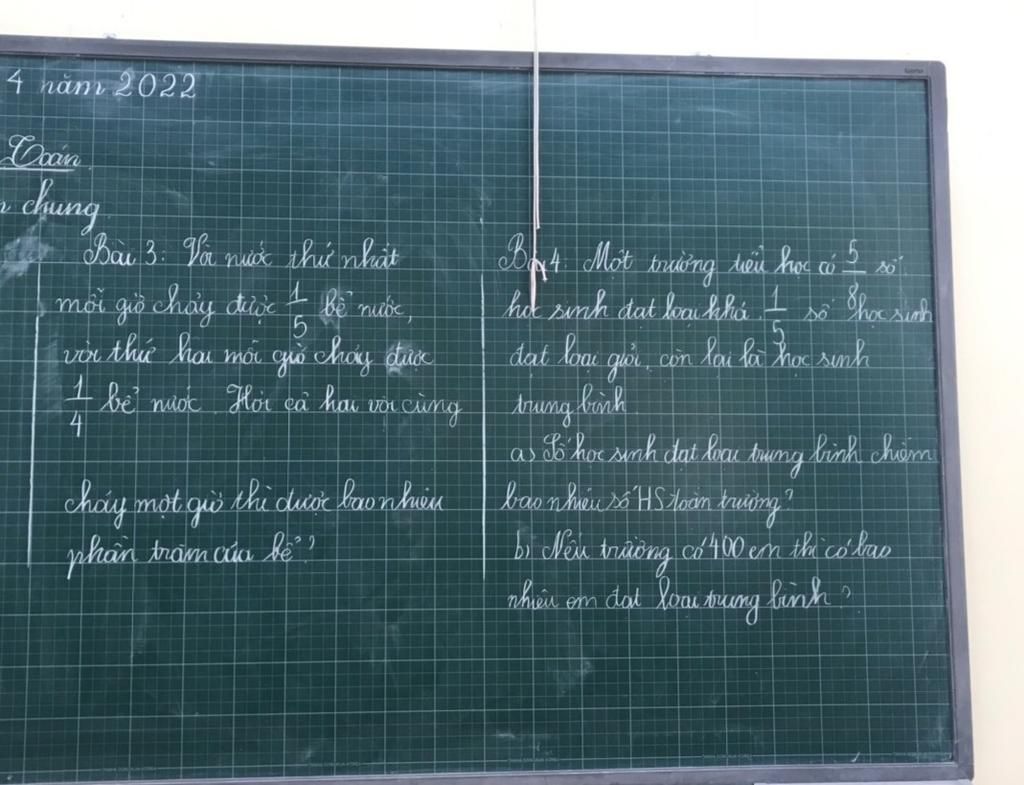 4 năm 2022
Toán
chung
Bài 3: Vòi nước thứ nhất
mỗi giờ chảy được 1/5 bể nước,
vòi thứ hai mỗi giờ chảy được
1/4 bể nước. Hỏi cả hai vòi cùng
chảy một giờ thì được bao nhiêu
phần trăm của bể?
Bài 4: Một trường tiểu học có 5/8 số
học sinh đạt loại khá, 1/5 số học sinh
đạt loại giỏi, còn lại là học sinh
trung bình
a) Số học sinh đạt loại trung bình chiếm
bao nhiêu số HS toàn trường?
b) Nếu trường có 400 em thì có bao
nhiêu em đạt loại trung bình?